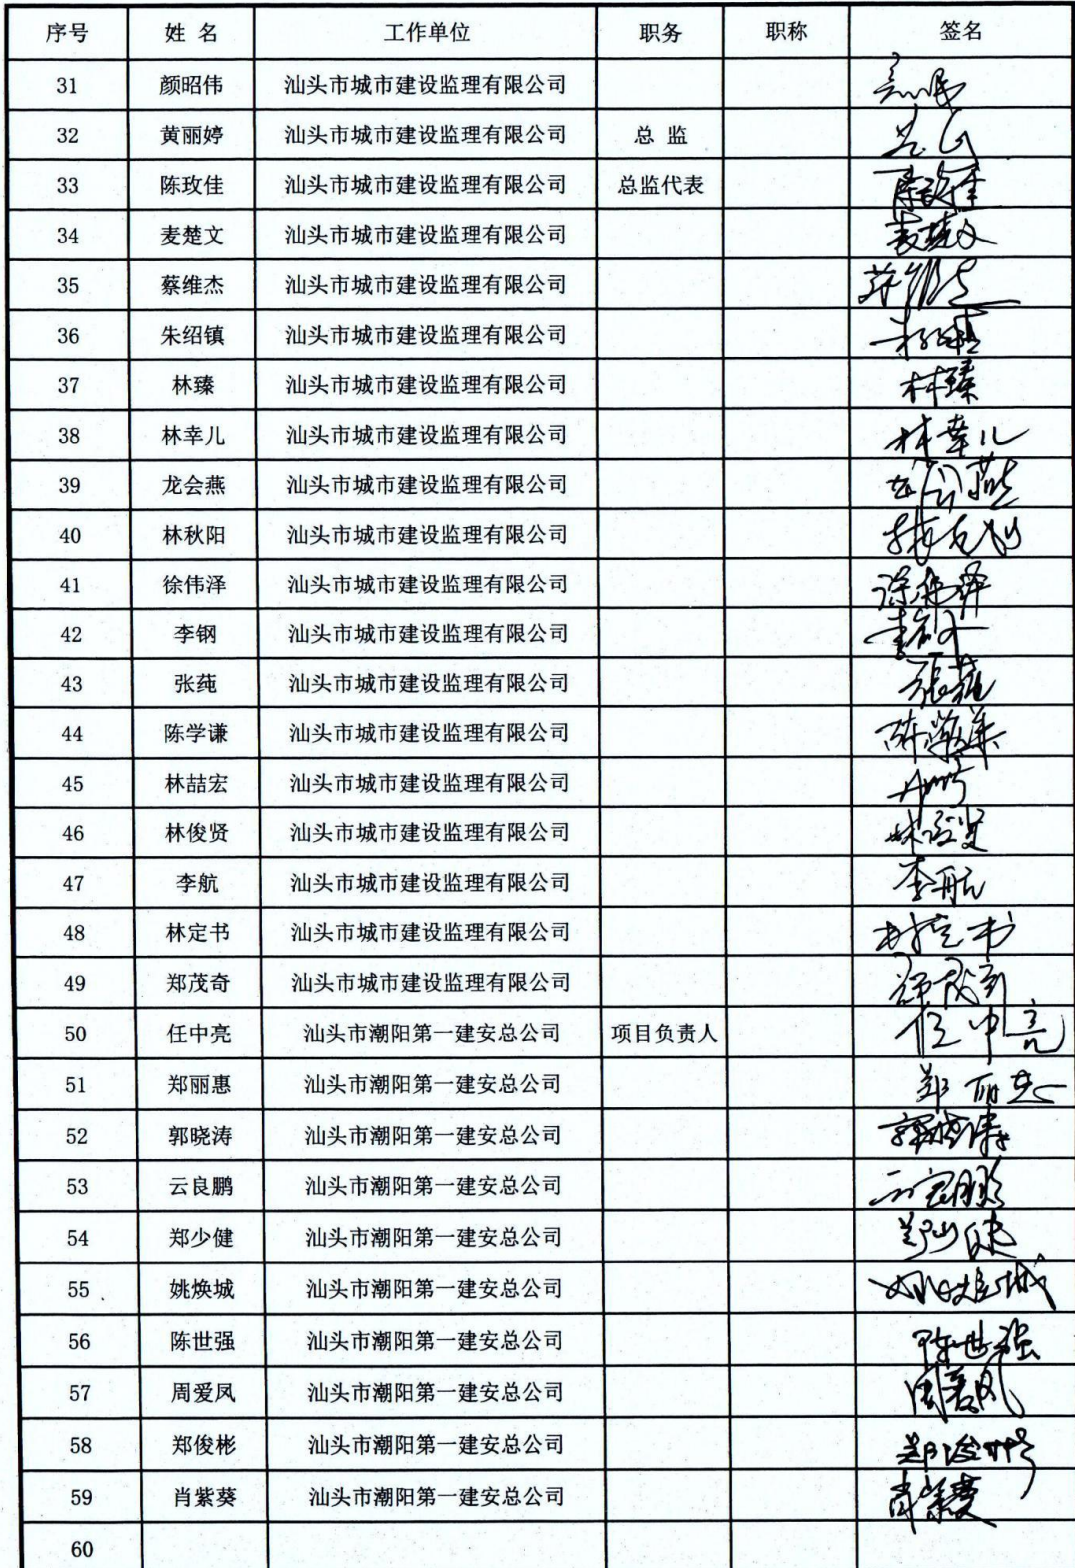 序号 姓 名 工作单位 职务 职称 签名
31 颜昭伟 汕头市城市建设监理有限公司
32 黄丽婷 汕头市城市建设监理有限公司 总 监
33 陈玫佳 汕头市城市建设监理有限公司 总监代表 陈玫佳
34 麦楚文 汕头市城市建设监理有限公司 麦楚文
35 蔡维杰 汕头市城市建设监理有限公司
36 朱绍镇 汕头市城市建设监理有限公司
37 林臻 汕头市城市建设监理有限公司 林臻
38 林幸儿 汕头市城市建设监理有限公司 林幸儿
39 龙会燕 汕头市城市建设监理有限公司 龙会燕
40 林秋阳 汕头市城市建设监理有限公司
41 徐伟泽 汕头市城市建设监理有限公司 徐伟泽
42 李钢 汕头市城市建设监理有限公司
43 张莼 汕头市城市建设监理有限公司 张莼
44 陈学谦 汕头市城市建设监理有限公司 陈学谦
45 林喆宏 汕头市城市建设监理有限公司
46 林俊贤 汕头市城市建设监理有限公司 林俊贤
47 李航 汕头市城市建设监理有限公司 李航
48 林定书 汕头市城市建设监理有限公司 林定书
49 郑茂奇 汕头市城市建设监理有限公司 郑茂奇
50 任中亮 汕头市潮阳第一建安总公司 项目负责人 任中亮
51 郑丽惠 汕头市潮阳第一建安总公司 郑丽惠
52 郭晓涛 汕头市潮阳第一建安总公司 郭晓涛
53 云良鹏 汕头市潮阳第一建安总公司 云良鹏
54 郑少健 汕头市潮阳第一建安总公司 郑少健
55 姚焕城 汕头市潮阳第一建安总公司 姚焕城
56 陈世强 汕头市潮阳第一建安总公司 陈世强
57 周爱凤 汕头市潮阳第一建安总公司 周爱凤
58 郑俊彬 汕头市潮阳第一建安总公司 郑俊彬
59 肖紫葵 汕头市潮阳第一建安总公司 肖紫葵
60